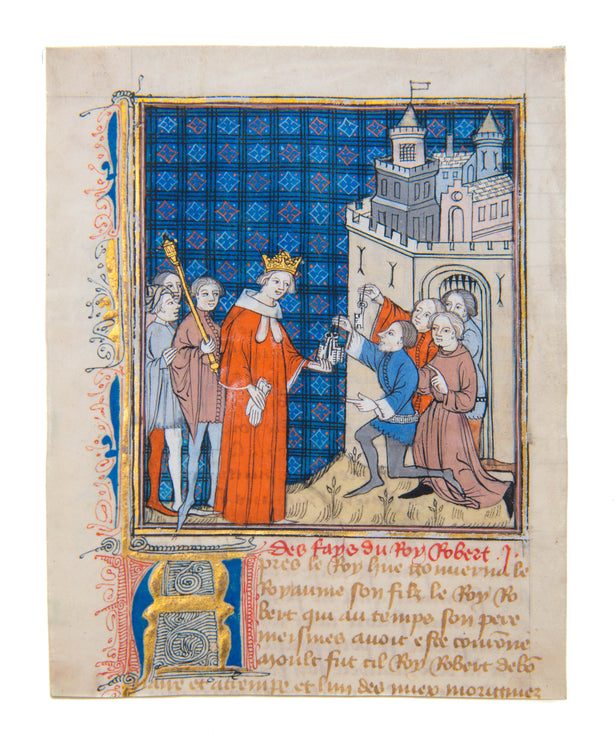 des fays du Roy Robert . J.
pres le Roy hue gouverna le
Royaume son filz le Roy Ro
bert qui au temps son pere
meismes avoit este couronne
moult fut cil Roy Robert debō
aire et attempe et lun des mieux